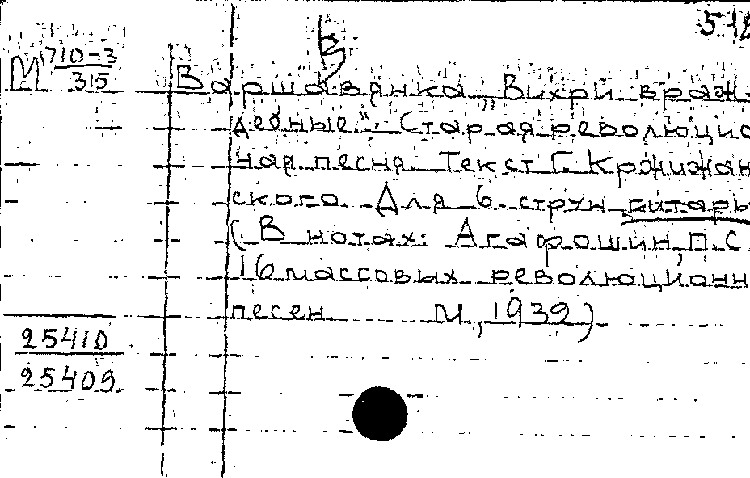 В 512
М 710-3
315
Варшавянка „Вихри враж-
дебные". Старая революцио
ная песня. Текст Г. Кржижан
ского. Для 6-струн гитары
(В нотах: Агафошин, П.С.
16 массовых революционн
песен М., 1939)
25410
25409